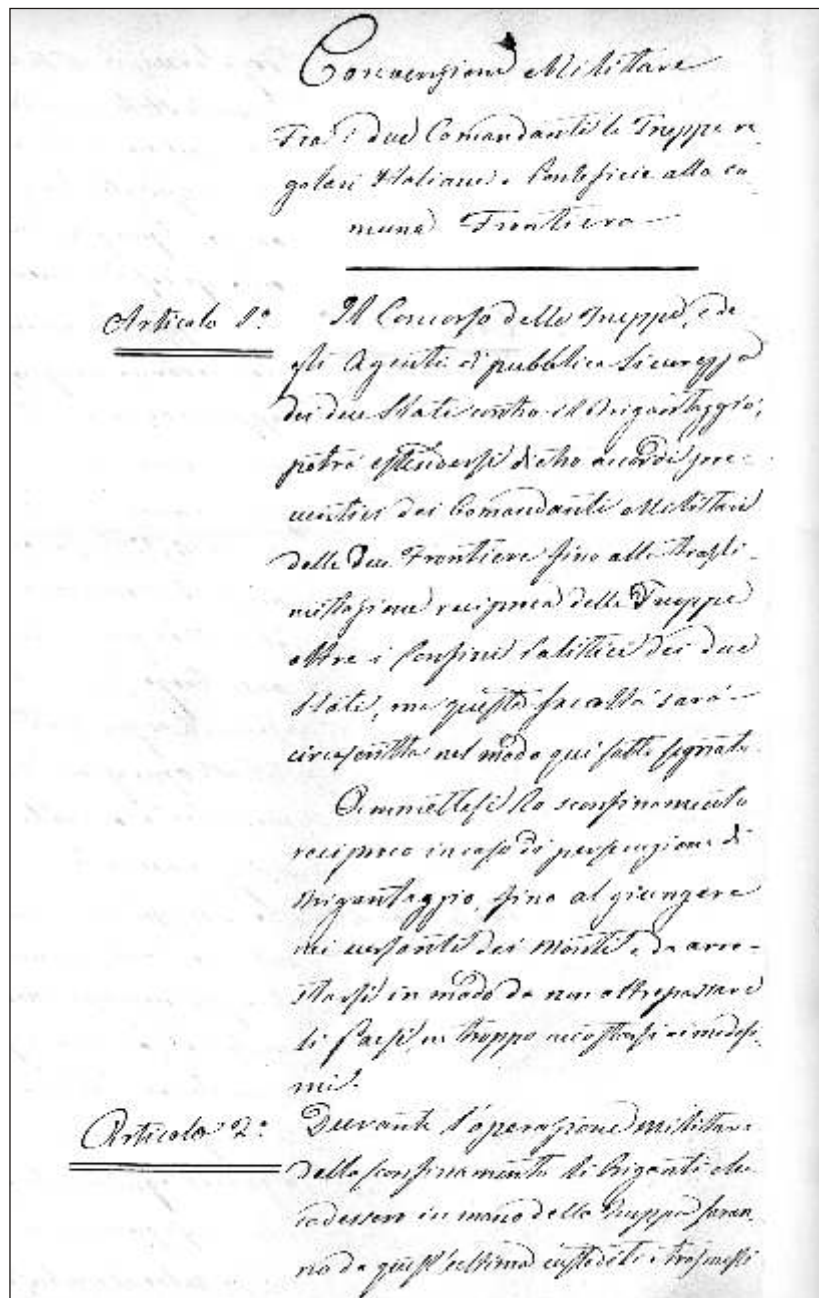 Convenzione Militare
Fra i due Comandanti le Truppe re
golari Italiane e Pontificie alla co
mune Frontiera
Articolo 1º
Il Concorso delle Truppe, e de
gli Agenti di pubblica Sicurezza
dei due Stati contro il Brigantaggio,
potrà estendersi dietro accordi pre-
ventivi dei Comandanti Militari
delle due Frontiere fino alla trasli-
mitazione reciproca delle Truppe
oltre i Confini Politici dei due
Stati, ma questa facoltà sarà
circoscritta nel modo qui sotto segnato.
Ammettesi lo sconfinamento
reciproco in caso di persecuzione di
Brigantaggio, fino al giungere
nei versanti dei Monti e da arre-
starsi in modo da non oltrepassare
li Paesi, ne troppo accostarsi ai medesi-
mi.
Articolo 2º
Durante l'operazione militare
dello sconfinamento li Briganti che
cadessero in mano della Truppa saran
no da quest'ultima custoditi e trasmessi